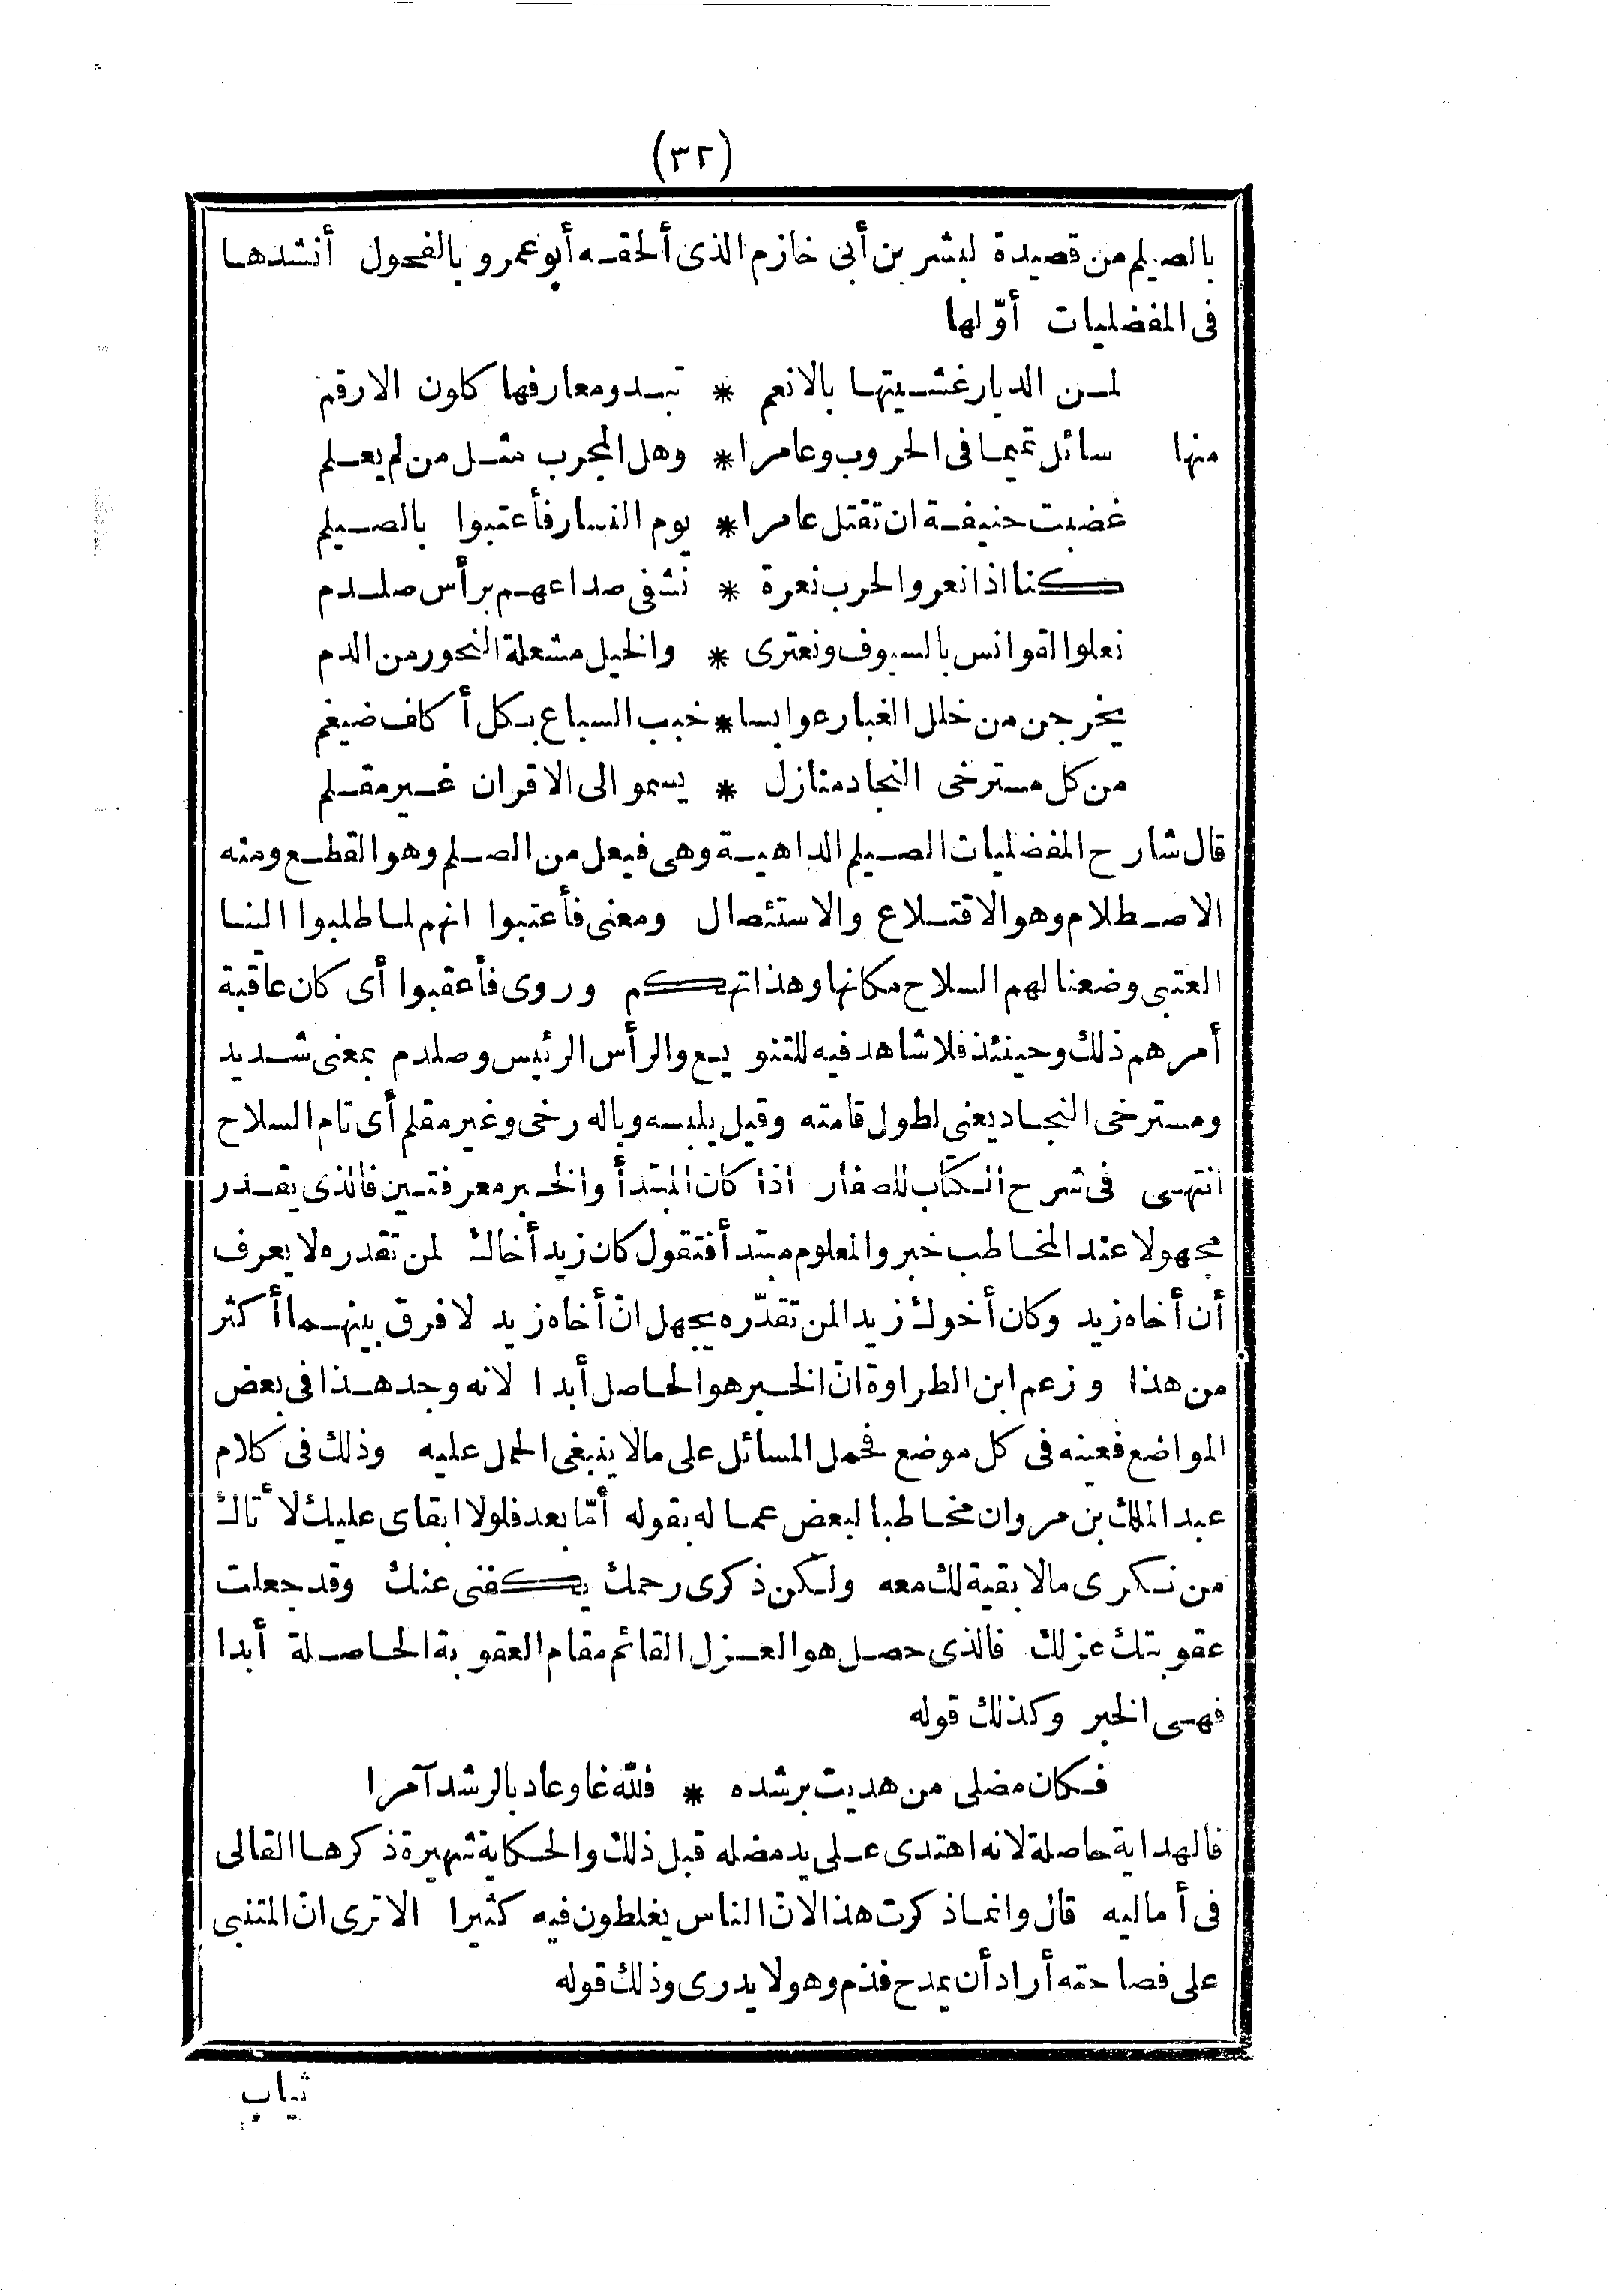 (٣٢)
بالصيلم من قصيدة لبشر بن أبى خازم الذى ألحقه أبو عمرو بالفحول أنشدها
فى المفضليات أوّلها
لمن الديار غشيتها بالانعم * تبدو معارفها كلون الارقم
منها سائل تميما فى الحروب وعامرا * وهل المجرب مثل من لم يعلم
غضبت حنيفة ان تقتل عامرا * يوم النسار فأعتبوا بالصيلم
كنا اذا نعروا لحرب نعرة * نشفى صداعهم برأس صلدم
نعلوا لقوانس بالسيوف ونعترى * والخيل مشعلة النحور من الدم
يخرجن من خلل الغبار عوابسا * خبب السباع بكل أكلف ضيغم
من كل مسترخى النجاد منازل * يسمو الى الاقران غير مقلم
قال شارح المفضليات الصيلم الداهية وهى فيعل من الصلم وهو القطع ومنه
الاصطلام وهو الاقتلاع والاستئصال ومعنى فأعتبوا انهم لما طلبوا الينا
العتبى وضعنا لهم السلاح مكانها وهذا تهكم وروى فأعقبوا أى كان عاقبة
أمرهم ذلك وحينئذ فلا شاهد فيه للتنويع والرأس الرئيس وصلدم بمعنى شديد
ومسترخى النجاد يعنى لطول قامته وقيل يلبسه وباله رخى وغير مقلم أى تام السلاح
انتهى فى شرح الكتاب للصفار اذا كان المبتدأ والخبر معرفتين فالذى يقدر
مجهولا عند المخاطب خبر والمعلوم مبتدأ فتقول كان زيد أخاك لمن تقدره لا يعرف
أن أخاه زيد وكان أخوك زيدا لمن تقدّره يجهل انّ أخاه زيد لا فرق بينهما أكثر
من هذا وزعم ابن الطراوة انّ الخبر هو الحاصل أبدا لانه وجد هذا فى بعض
المواضع فعينه فى كل موضع فحمل المسائل على مالا ينبغى الحمل عليه وذلك فى كلام
عبد الملك بن مروان مخاطبا لبعض عماله بقوله أمّا بعد فلولا ابقاى عليك لأتاك
من نكرى مالا بقية لك معه ولكن ذكرى رحمك يكفنى عنك وقد جعلت
عقوبتك عزلك فالذى حصل هو العزل القائم مقام العقوبة الحاصلة أبدا
فهى الخبر وكذلك قوله
فكان مضلى من هديت برشده * فلله غاو عاد بالرشد آمرا
فالهداية حاصلة لانه اهتدى على يد مضله قبل ذلك والحكاية شهيرة ذكرها القالى
فى أماليه قال وانما ذكرت هذا لانّ الناس يغلطون فيه كثيرا الا ترى انّ المتنبى
على فصاحته أراد أن يمدح فذم وهو لا يدرى وذلك قوله
ثياب